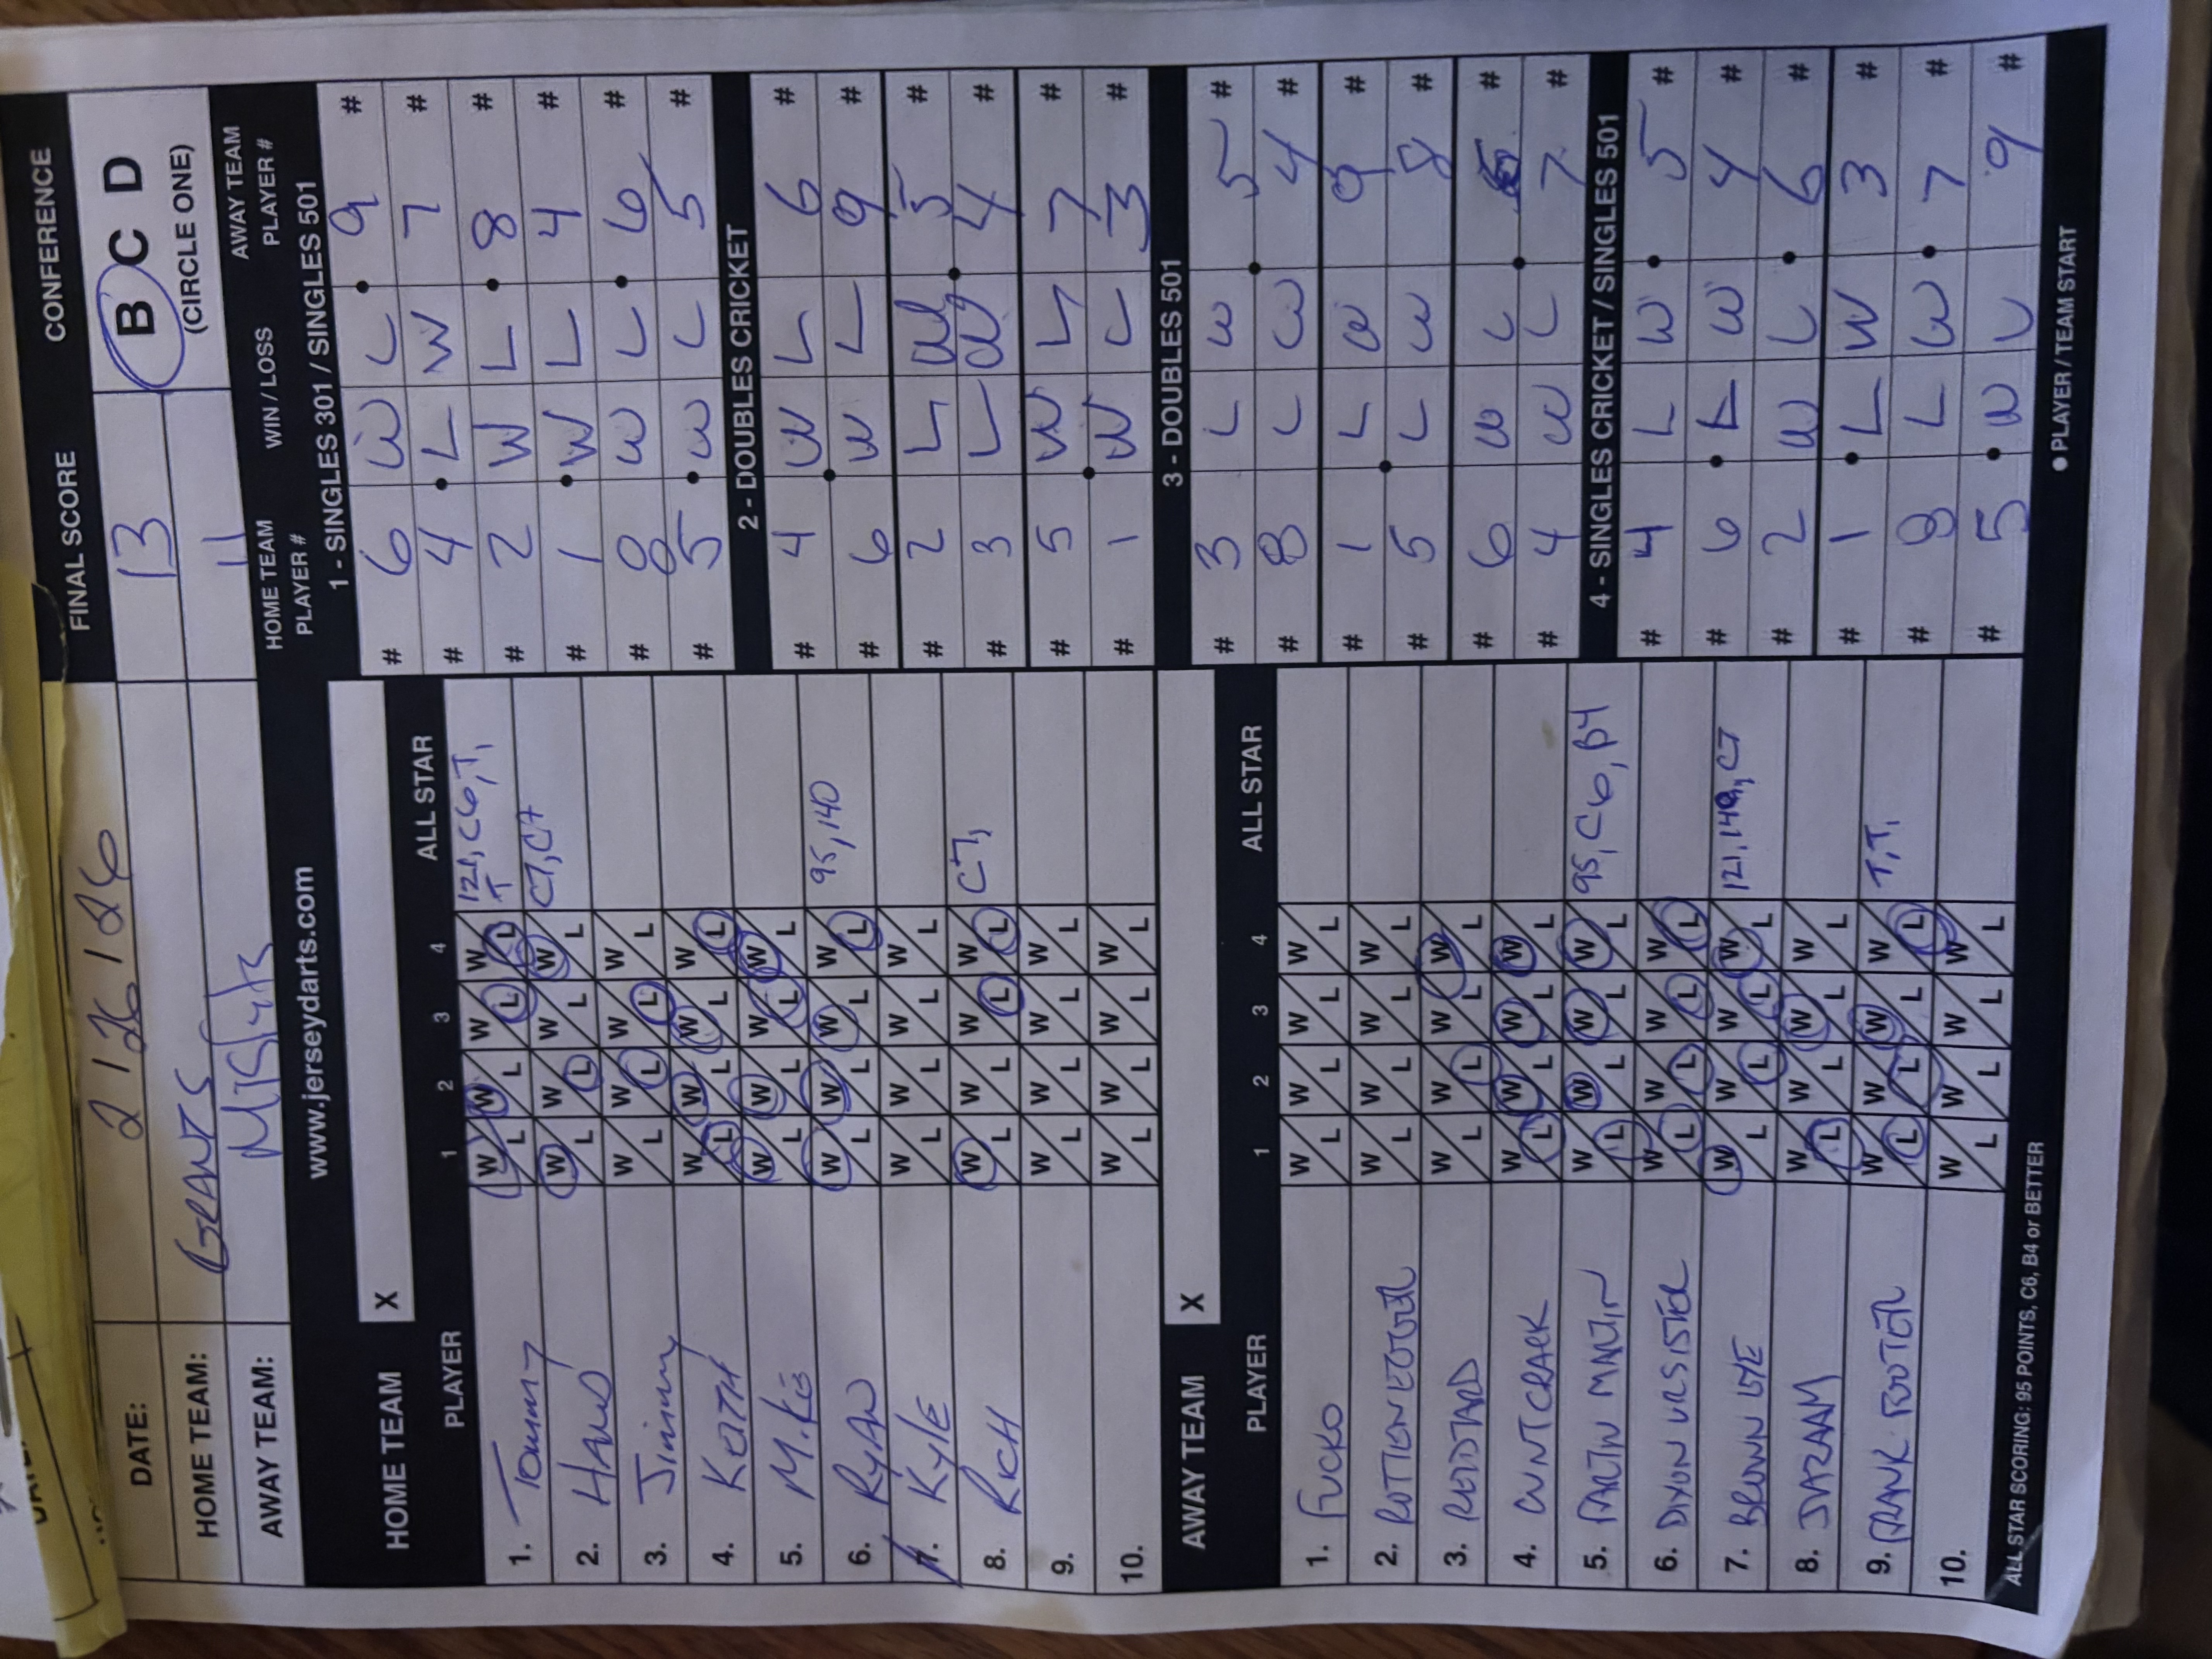 DATE: 2 / 26 / 26
FINAL SCORE
CONFERENCE
HOME TEAM: GRANTS 13
B C D
AWAY TEAM: 11
(CIRCLE ONE)
www.jerseydarts.com
HOME TEAM X
PLAYER 1 2 3 4 ALL STAR
1. Tommy W L W L W L W L 121, C6, T, T
2. HANS W L W L W L W L C7, C7
3. Jimmy W L W L W L W L
4. KEITH W L W L W L W L
5. Mike W L W L W L W L
6. RYAN W L W L W L W L 95, 140
7. KYLE W L W L W L W L
8. RICH W L W L W L W L C7,
9. W L W L W L W L
10. W L W L W L W L
AWAY TEAM X
PLAYER 1 2 3 4 ALL STAR
1. FUCKO W L W L W L W L
2. W L W L W L W L
3. W L W L W L W L
4. CUNTCRACK W L W L W L W L
5. W L W L W L W L 95, C6, B4
6. DIXON URSISTER W L W L W L W L
7. BROWN EYE W L W L W L W L 121, 140, C7
8. W L W L W L W L
9. W L W L W L W L T, T,
10. W L W L W L W L
ALL STAR SCORING: 95 POINTS, C6, B4 or BETTER
HOME TEAM PLAYER #
WIN / LOSS
AWAY TEAM PLAYER #
1 - SINGLES 301 / SINGLES 501
# 6 W L 9 #
# 4 L W 7 #
# 2 W L 8 #
# 1 W L 4 #
# 8 W L 6 #
# 5 W L 5 #
2 - DOUBLES CRICKET
# 4 W L 6 #
# 6 W L 9 #
# 2 L W 5 #
# 3 L W 4 #
# 5 W L 7 #
# 1 W L 3 #
3 - DOUBLES 501
# 3 L W 5 #
# 8 L W 4 #
# 1 L W 9 #
# 5 L W 8 #
# 6 W L #
# 4 W L 7 #
4 - SINGLES CRICKET / SINGLES 501
# 4 L W 5 #
# 6 L W 4 #
# 2 W L 6 #
# 1 L W 3 #
# 8 L W 7 #
# 5 W L 9 #
● PLAYER / TEAM START